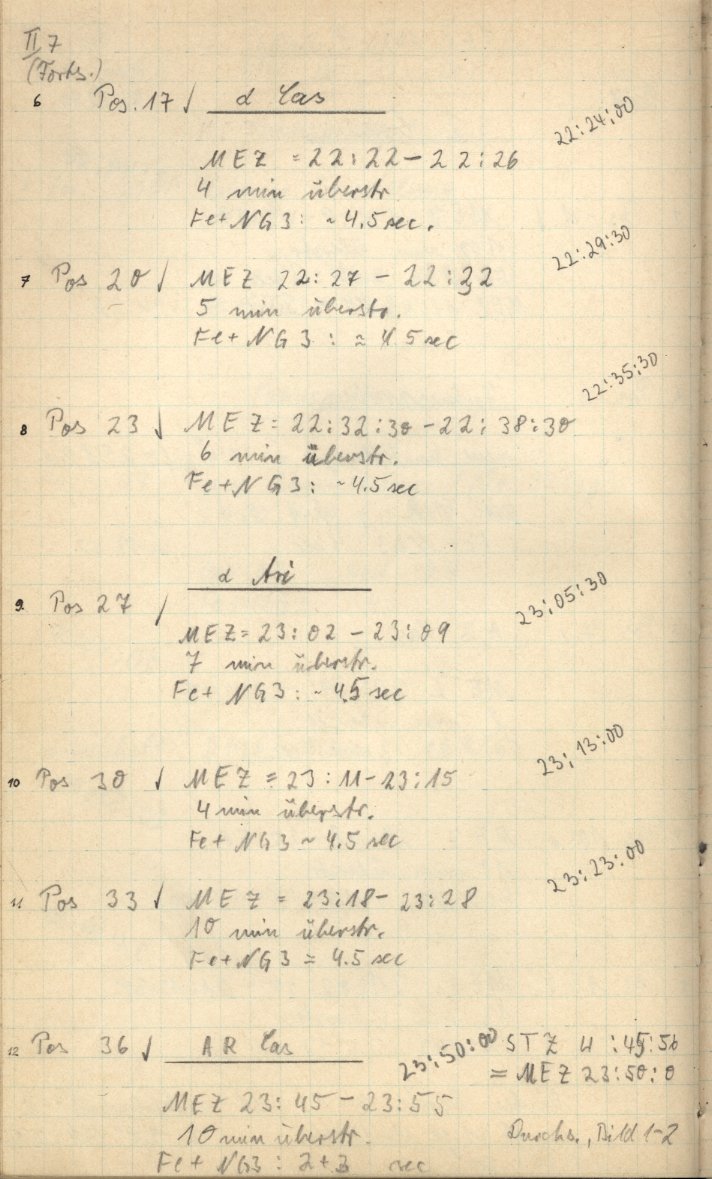 II 7
(Forts.)
6 Pos. 17 √ α Cas
22:24:00
MEZ = 22:22 - 22:26
4 min überstr
Fe+NG3: ~4.5sec.
22:29:30
7 Pos 20 √ MEZ 22:27 - 22:32
5 min überstr.
Fe+NG3: ≈ 4.5 sec
22:35:30
8 Pos 23 √ MEZ = 22:32:30 - 22:38:30
6 min überstr.
Fe+NG3: ~4.5 sec
α Ari
9 Pos 27 /
23:05:30
MEZ = 23:02 - 23:09
7 min überstr.
Fe+ NG3: ~ 4.5 sec
23:13:00
10 Pos 30 √ MEZ = 23:11 - 23:15
4 min überstr.
Fe+ NG3 ~ 4.5 sec
23:23:00
11 Pos 33 √ MEZ = 23:18 - 23:28
10 min überstr.
Fe+NG3 = 4.5 sec
12 Pos 36 √ AR Cas
23:50:00 STZ 4:45:50
= MEZ 23:50:0
MEZ 23:45 - 23:55
10 min überstr. Durchs., Bild 1-2
Fe+ NG3: 2+3 sec